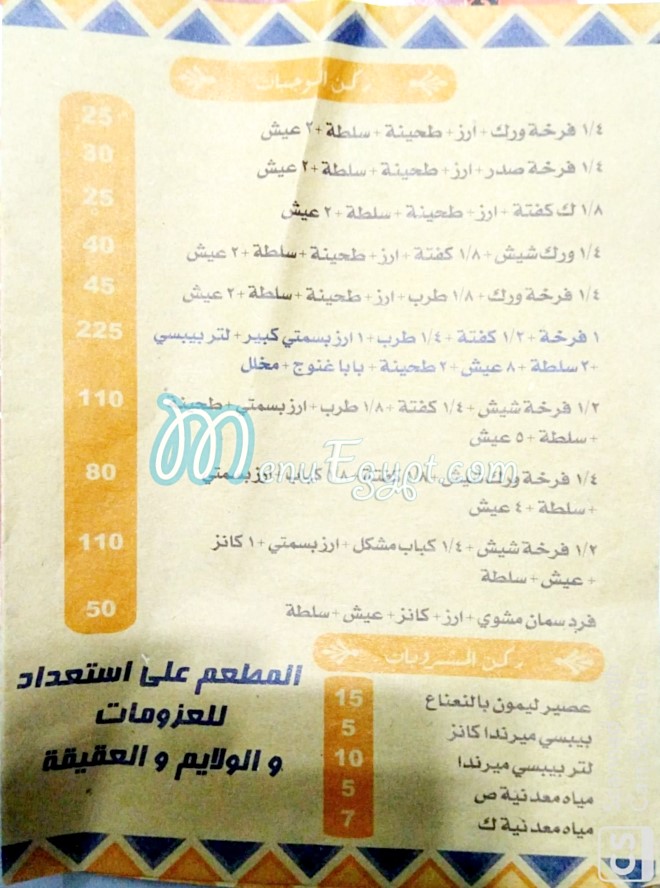 ركن الوجبات
١/٤ فرخة ورك + ارز + طحينة + سلطة + ٢ عيش 25
١/٤ فرخة صدر + ارز + طحينة + سلطة + ٢ عيش 30
١/٨ ك كفتة + ارز + طحينة + سلطة + ٢ عيش 25
١/٤ ورك شيش + ١/٨ كفتة + ارز + طحينة + سلطة + ٢ عيش 40
١/٤ فرخة ورك + ١/٨ طرب + ارز + طحينة + سلطة + ٢ عيش 45
١ فرخة + ١/٢ كفتة + ١/٤ طرب + ١ ارز بسمتي كبير + لتر بيبسي 225
+ ٢ سلطة + ٨ عيش + ٢ طحينة + بابا غنوج + مخلل
١/٢ فرخة شيش + ١/٤ كفتة + ١/٨ طرب + ارز بسمتي + طحينة 110
+ سلطة + ٥ عيش
١/٤ فرخة ورك شيش + ١/٨ كفتة + ١/٨ كباب + ارز بسمتي 80
+ سلطة + ٤ عيش
١/٢ فرخة شيش + ١/٤ كباب مشكل + ارز بسمتي + ١ كانز 110
+ عيش + سلطة
فرد سمان مشوي + ارز + كانز + عيش + سلطة 50
MenuEgypt.com
ركن المشروبات
عصير ليمون بالنعناع 15
بيبسي ميرندا كانز 5
لتر بيبسي ميرندا 10
مياه معدنية ص 5
مياه معدنية ك 7
المطعم على استعداد
للعزومات
و الولايم و العقيقة